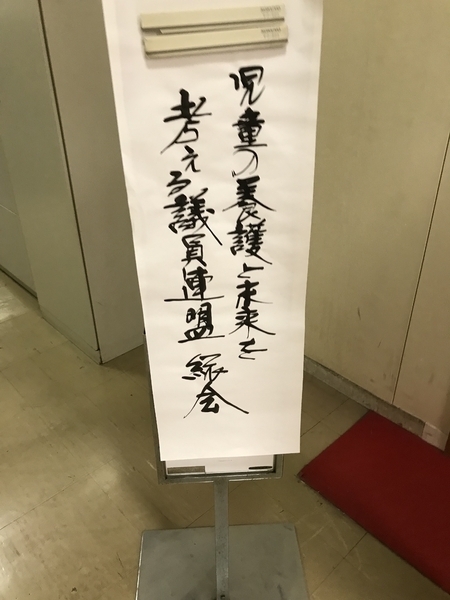 児童の養護と未来を
考える議員連盟 総会